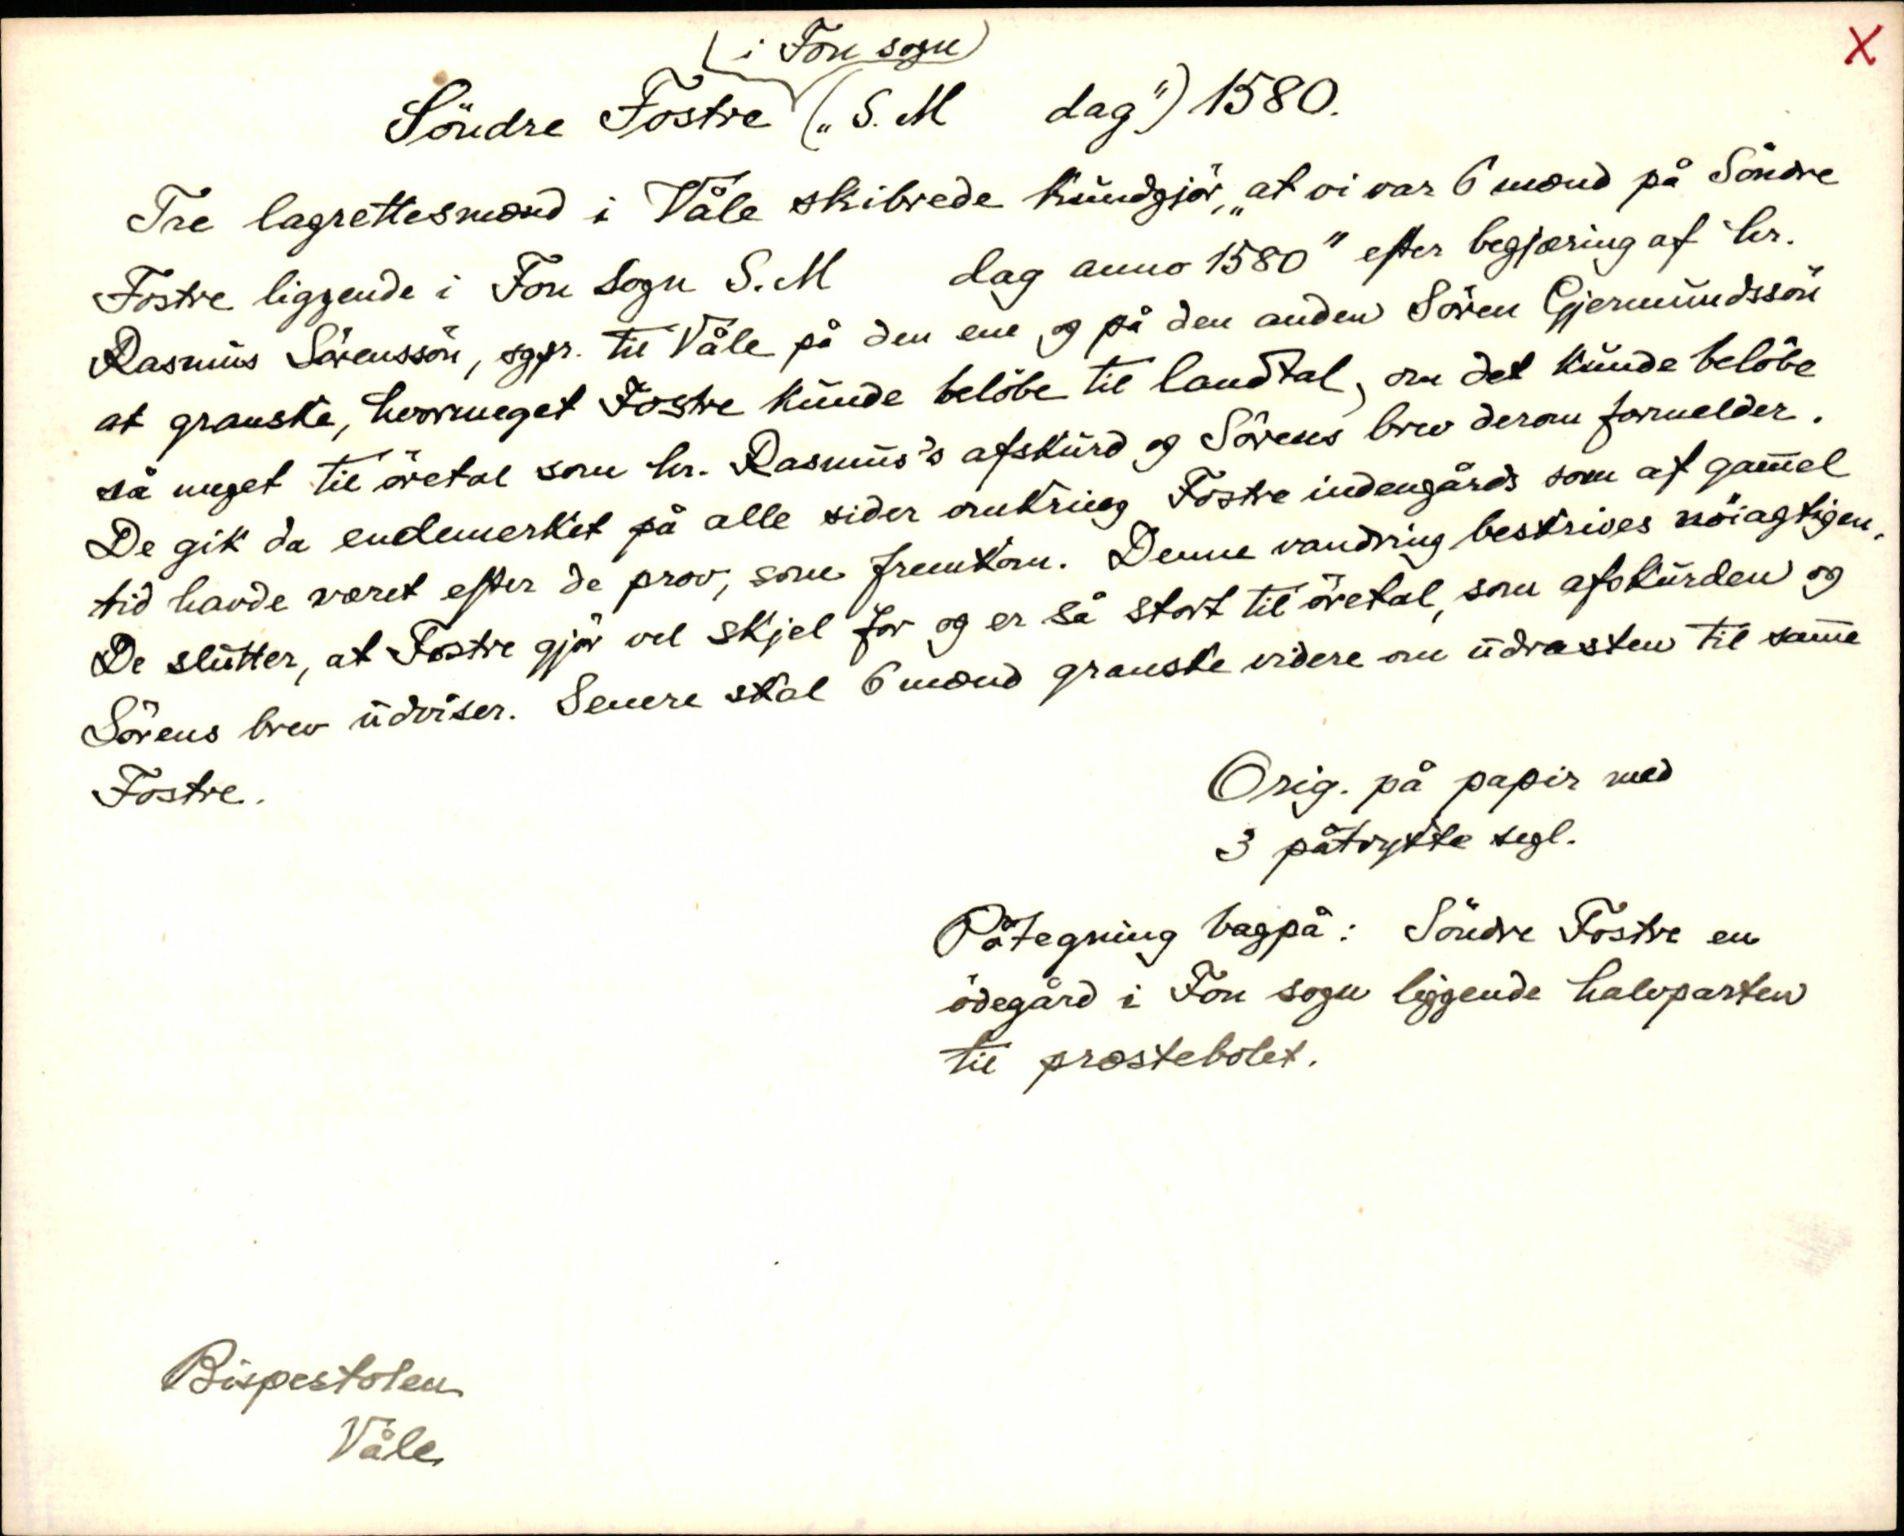 (i Fon sogn)
X
Söndre Fostre („S. M dag") 1580.
Tre lagrettesmænd i Våle skibrede kundgjör, „at vi var 6 mænd på Söndre
Fostre liggende i Fon Sogn S. M dag anno 1580" efter begjæring af hr.
Rasmus Sörenssön, sgpr. til Våle på den ene og på den anden Sören Gjermundssön
at granske, hvormeget Fostre kunde belöbe til landtal, om det kunde belöbe
så meget til öretal som hr. Rasmus's afskurd og Sörens brev derom formelder.
De gik da endemerket på alle sider omkring Fostre indengårds som af gam̅el
tid havde været efter de prov, som fremkom. Denne vandring beskrives nöiagtigen.
De slutter, at Fostre gjör vel skjel for og er så stort til öretal, som afskurden og
Sörens brev udviser. Senere skal 6 mænd granske videre om udrasten til sam̅e
Fostre.
Orig. på papir med
3 påtrykte segl.
Påtegning bagpå: Söndre Fostre en
ödegård i Fon sogn liggende halvparten
til præstebolet.
Bispestolen
Våle